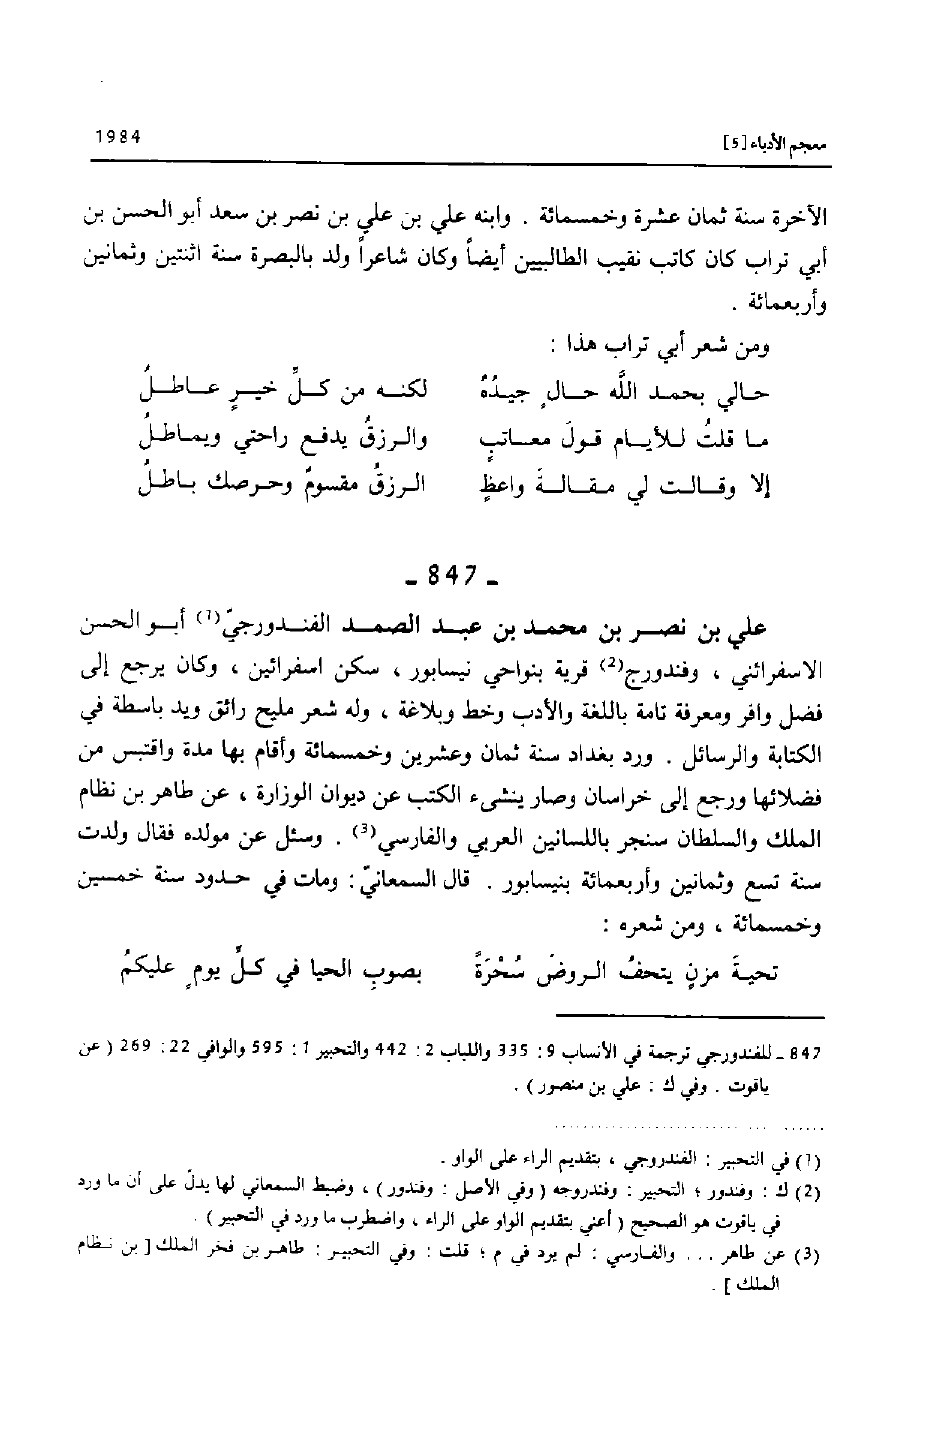 معجم الأدباء [5]
1984
الآخرة سنة ثمان عشرة وخمسمائة . وابنه علي بن علي بن نصر بن سعد أبو الحسن بن
أبي تراب كان كاتب نقيب الطالبيين أيضاً وكان شاعراً ولد بالبصرة سنة اثنتين وثمانين
وأربعمائة .
ومن شعر أبي تراب هذا :
حالي بحمد اللَّه حالٍ جيدُهُ لكنه من كلِّ خيرٍ عاطلُ
ما قلتُ للأيام قولَ معاتبٍ والرزقُ يدفع راحتي ويماطلُ
إلا وقالت لي مقالةَ واعظٍ الرزقُ مقسومٌ وحرصك باطلُ
ـ 847 ـ
علي بن نصر بن محمد بن عبد الصمد الفندورجيّ(1) أبو الحسن
الاسفرائني ، وفندورج(2) قرية بنواحي نيسابور ، سكن اسفرائين ، وكان يرجع إلى
فضل وافر ومعرفة تامة باللغة والأدب وخط وبلاغة ، وله شعر مليح رائق ويد باسطة في
الكتابة والرسائل . ورد بغداد سنة ثمان وعشرين وخمسمائة وأقام بها مدة واقتبس من
فضلائها ورجع إلى خراسان وصار ينشىء الكتب عن ديوان الوزارة ، عن طاهر بن نظام
الملك والسلطان سنجر باللسانين العربي والفارسي(3) . وسئل عن مولده فقال ولدت
سنة تسع وثمانين وأربعمائة بنيسابور . قال السمعانيّ : ومات في حدود سنة خمسين
وخمسمائة ، ومن شعره :
تحيةَ مزنٍ يتحفُ الروضَ سُحْرَةً بصوبِ الحيا في كلِّ يومٍ عليكمُ
847 ـ للفندورجي ترجمة في الأنساب 9 : 335 واللباب 2 : 442 والتحبير 1 : 595 والوافي 22 : 269 ( عن
ياقوت . وفي ك : علي بن منصور ) .
(1) في التحبير : الفندروجي ، بتقديم الراء على الواو .
(2) ك : وفندور ؛ التحبير : وفندروجه ( وفي الأصل : وفندور ) ، وضبط السمعاني لها يدلّ على أن ما ورد
في ياقوت هو الصحيح ( أعني بتقديم الواو على الراء ، واضطرب ما ورد في التحبير ) .
(3) عن طاهر ... والفارسي : لم يرد في م ؛ قلت : وفي التحبير : طاهر بن فخر الملك [ بن نظام
الملك ] .